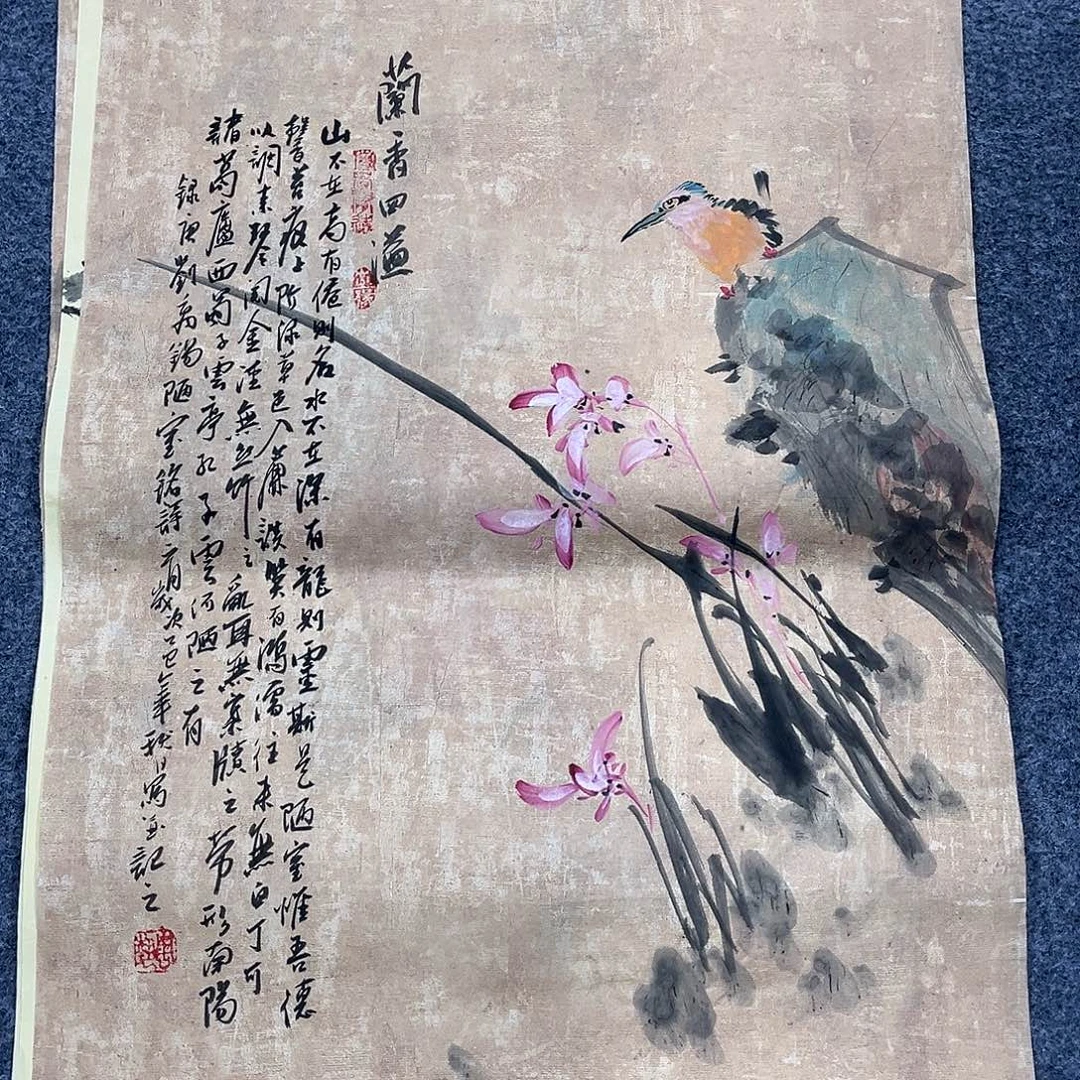 蘭香四溢
山不在高有僊則名水不在深有龍則靈斯是陋室惟吾德
馨苔痕上階綠草色入簾談笑有鴻儒往來無白丁可
以調素琴閱金經無絲竹之亂耳無案牘之勞形南陽
諸葛廬西蜀子雲亭孔子雲何陋之有
錄唐劉禹錫陋室銘詩一首歲次乙巳年秋寫並記之